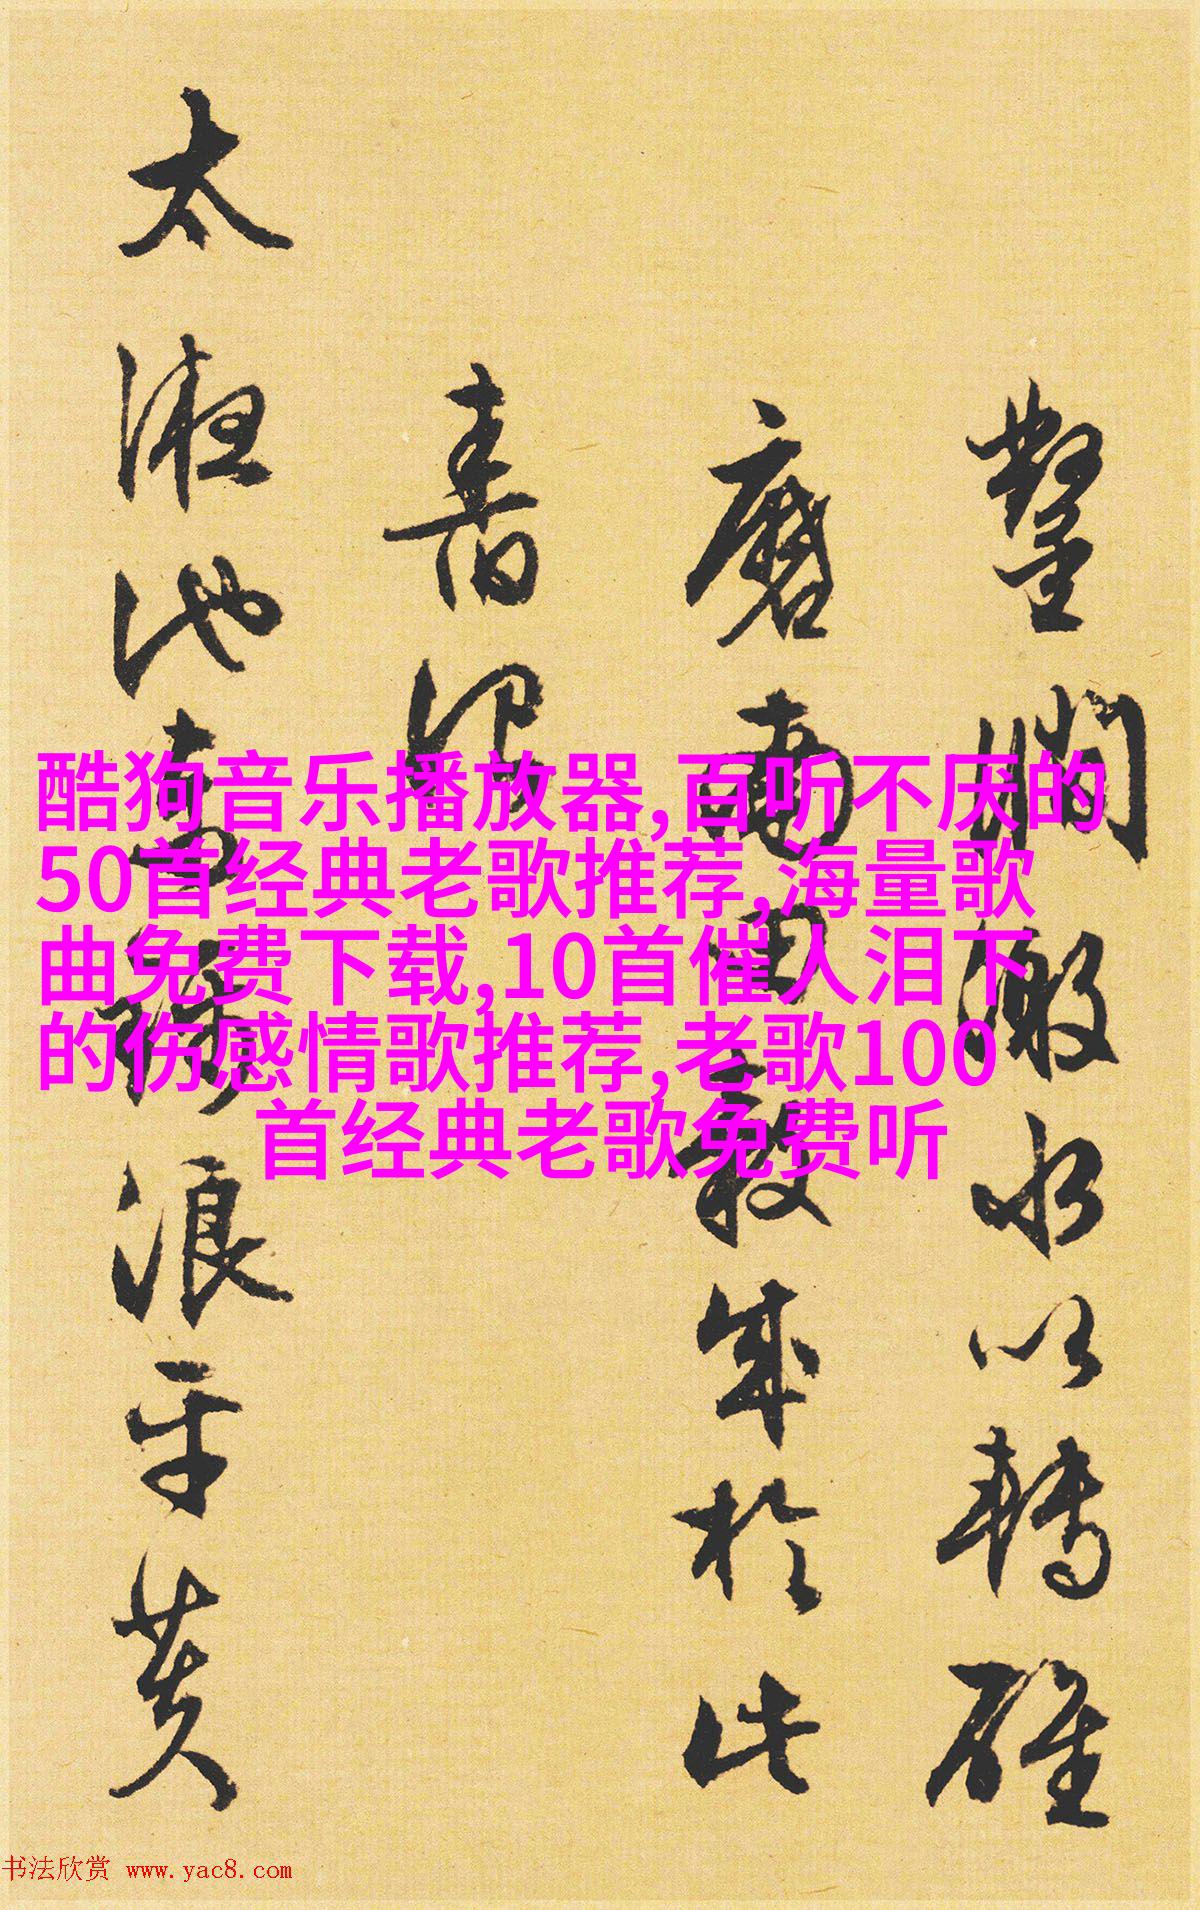 酷狗音乐播放器,百听不厌的
50首经典老歌推荐,海量歌
曲免费下载,10首催人泪下
的伤感情歌推荐,老歌100
首经典老歌免费听
鑿澗激水以轉碓
磨南田穀成於此
太液池浪平黄
书法欣赏 www.yac8.com